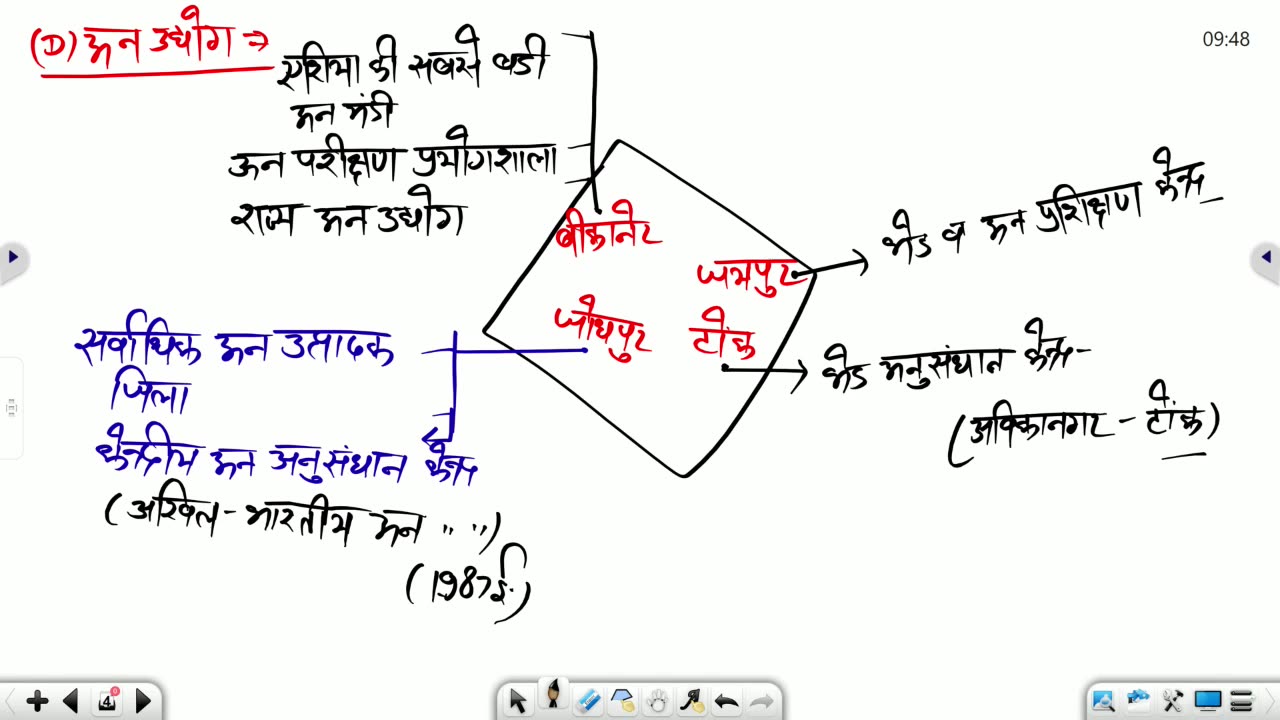 (D) ऊन उद्योग ⇒
09:48
एशिया की सबसे बडी
ऊन मंडी
ऊन परीक्षण प्रयोगशाला
राज्य ऊन उद्योग
बीकानेर
जयपुर
भेड व ऊन प्रशिक्षण केन्द्र
जोधपुर
टोंक
सर्वाधिक ऊन उत्पादक
जिला
भेड अनुसंधान केन्द्र-
(अविकानगर - टोंक)
केन्द्रीय ऊन अनुसंधान केन्द्र
(अखिल - भारतीय ऊन " ")
(1987ई.)
4
0